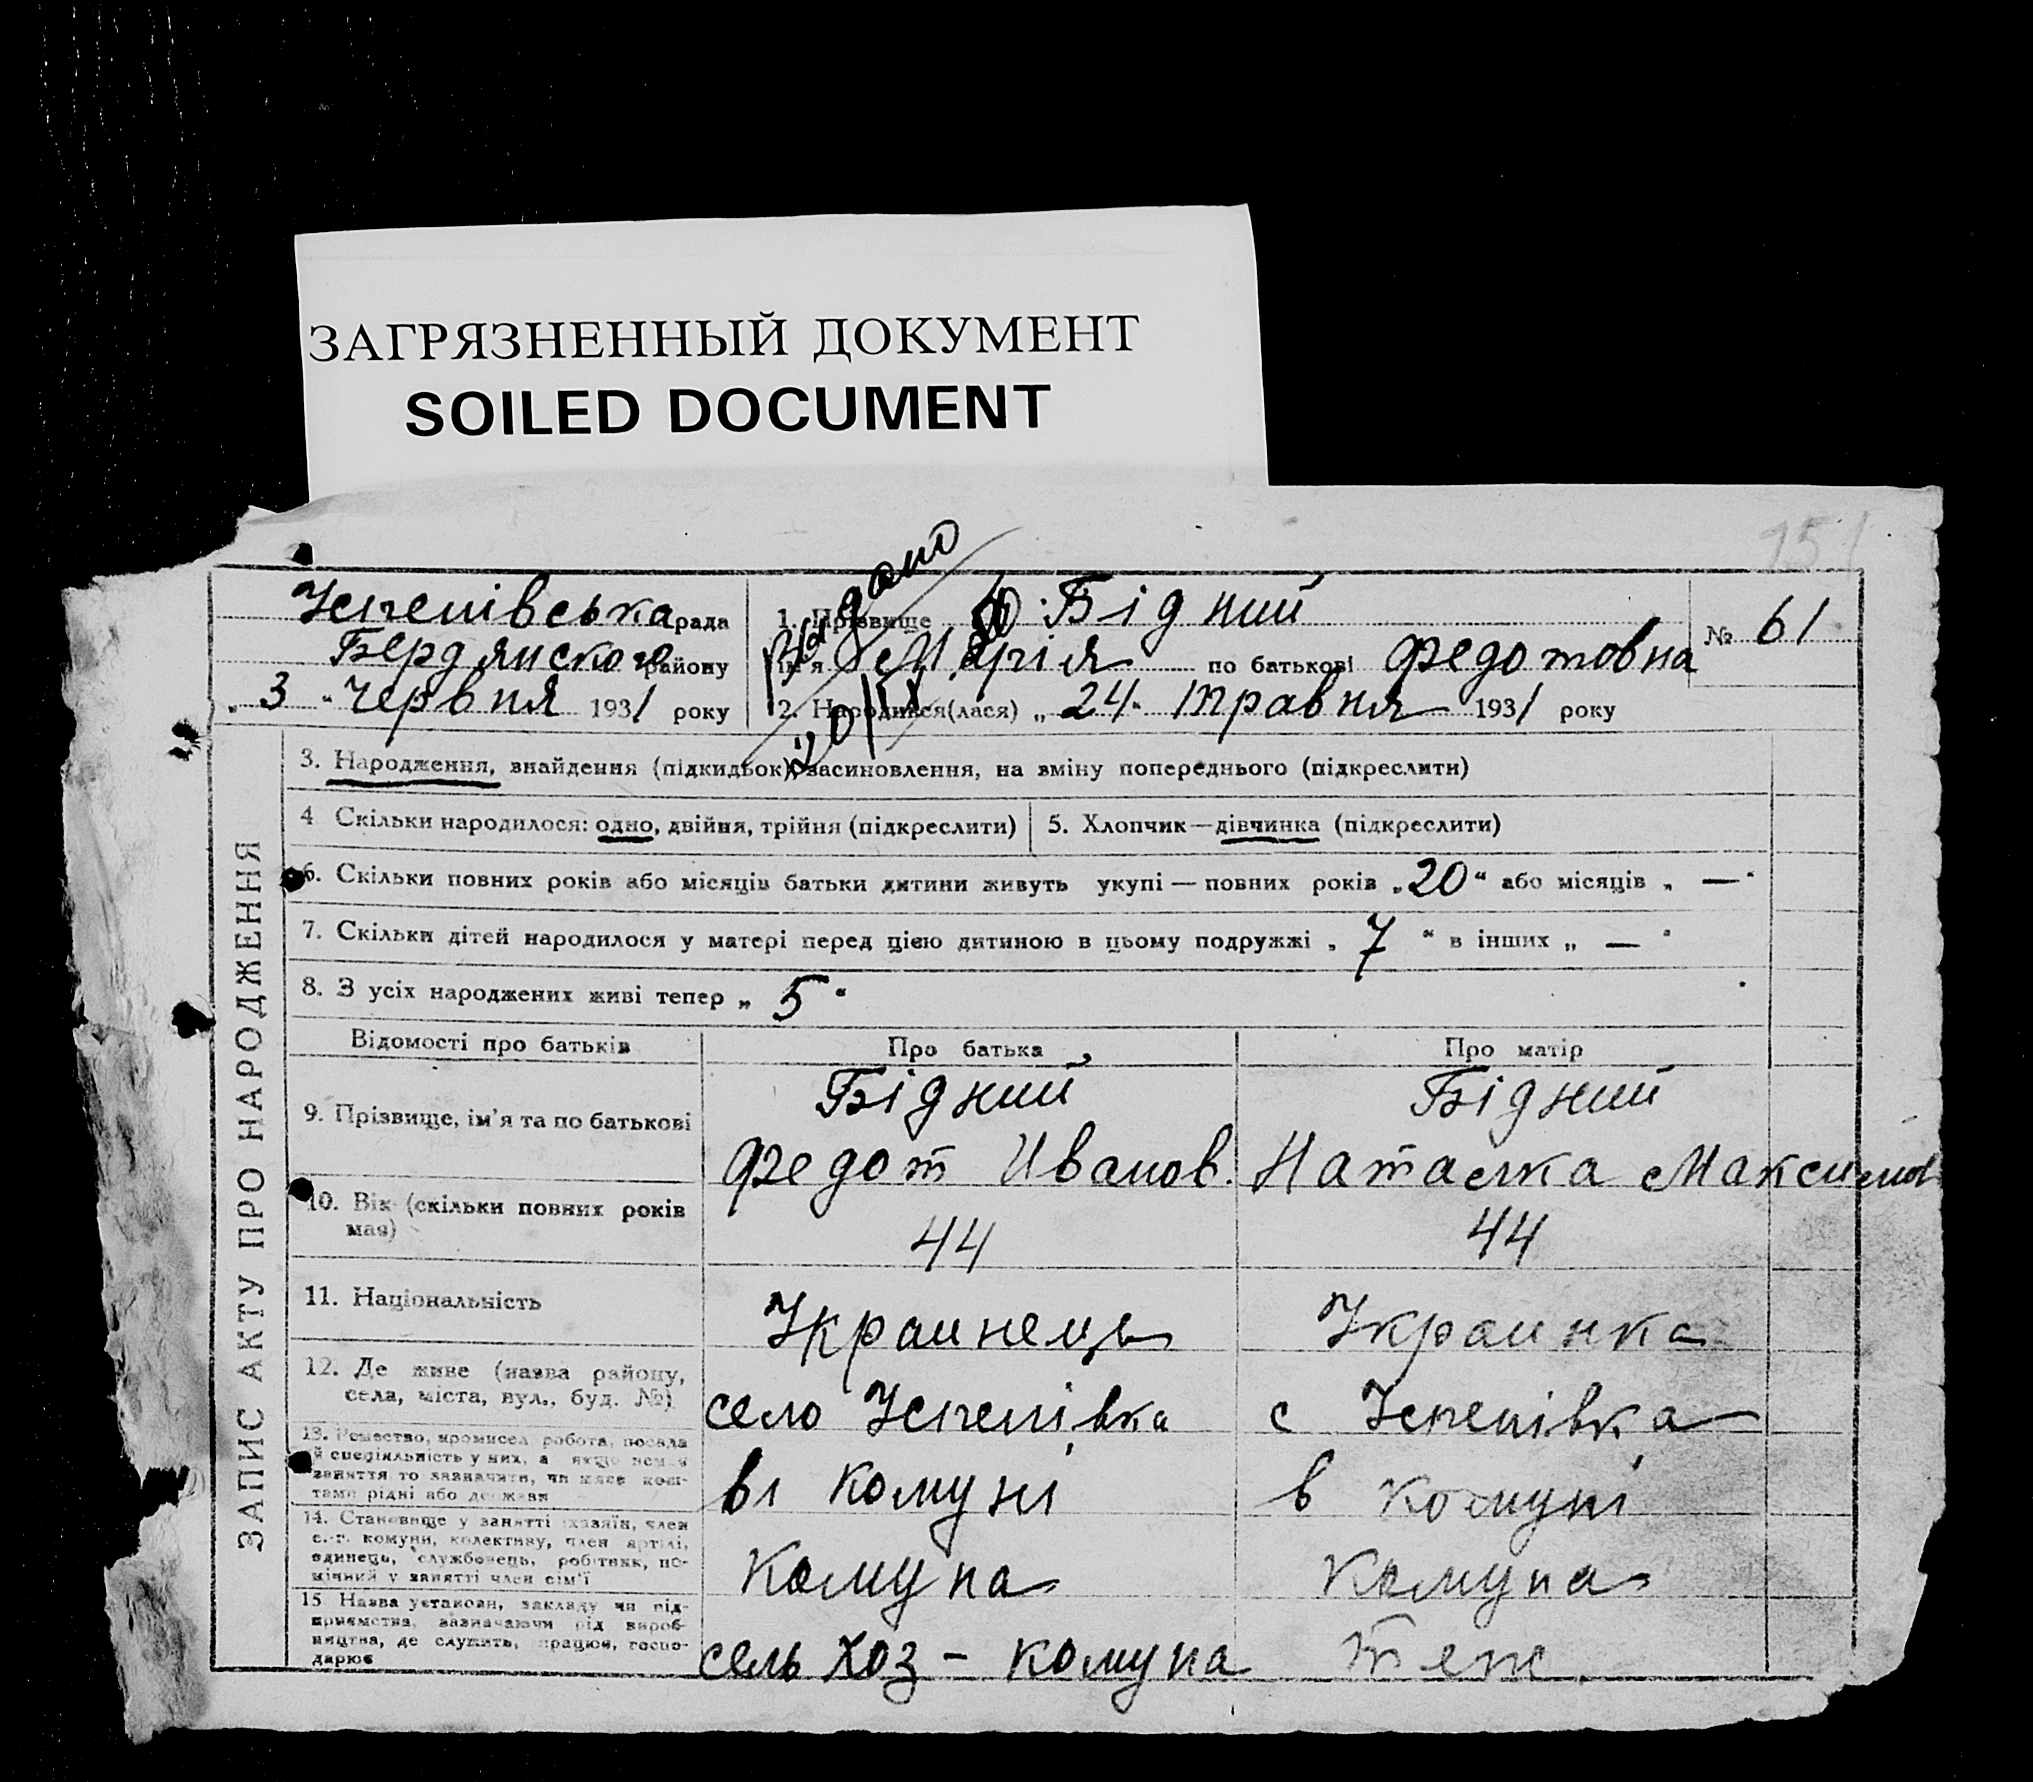 ЗАГРЯЗНЕННЫЙ ДОКУМЕНТ
SOILED DOCUMENT
151
Успенівська рада
Бердянского району
„ 3 “ Червня 1931 року
Видано
1. Прізвище Бідний
ім'я Марія по батькові Федотовна
2. Народився(лася) „ 24 “ травня 1931 року
№ 61
ЗАПИС АКТУ ПРО НАРОДЖЕННЯ
3. Народження, знайдення (підкидьок), засиновлення, на зміну попереднього (підкреслити)
4 Скільки народилося: одно, двійня, трійня (підкреслити)
5. Хлопчик—дівчинка (підкреслити)
6. Скільки повних років або місяців батьки дитини живуть укупі — повних років „ 20 “ або місяців „ — “
7. Скільки дітей народилося у матері перед цією дитиною в цьому подружжі „ 7 “ в інших „ — “
8. З усіх народжених живі тепер „ 5 “
Відомості про батьків
Про батька
Про матір
9. Прізвище, ім'я та по батькові
Бідний
Федот Иванов.
Бідний
Наталка Максимов
10. Вік (скільки повних років
має)
44
44
11. Національність
Украинець
Украинка
12. Де живе (назва району,
села, міста, вул., буд. №)
село Успенівка
с Успенівка
13. Ремество, промисел робота, посада
й спеціяльність у них, а якщо нема
заняття то зазначити, чи живе кош-
тами рідні або держави
ві комуні
в комуні
14. Становище у занятті хазяїн, член
с.-г. комуни, колективу, член артілі,
одинець, службовець, робітник, по-
мічний у занятті член сім'ї
Комуна
Комуна
15 Назва установи, закладу чи під-
приємства, зазначаючи рід вироб-
ництва, де служить, працює, госпо-
дарює
сель хоз - комуна
теж.